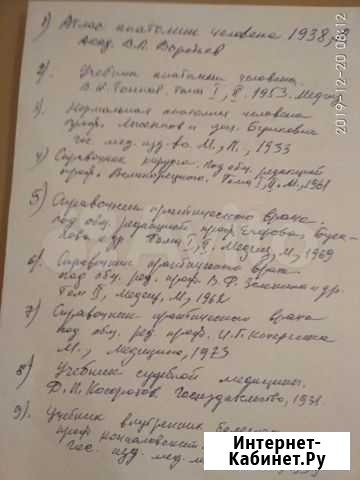 1) Атлас анатомии человека 1938,
акад. В.П. Воробьев
2) Учебник анатомии человека.
В.Н. Тонков. Томы I, II. 1953. Медгиз
3) Нормальная анатомия человека
проф. Лысенков и
гос. мед. изд-во М., Л., 1933
4) Справочник хирурга. Под общ. редакцией
проф. Великорецкого. Томы I, II. М., 1961
5) Справочник практического врача.
под общ. редакцией, проф. Егорова,
Томы I, II, Медгиз, М., 1969
6) Справочник практического врача
под общ. ред. проф. В.Ф. Зеленина и др.
Том II, Медгиз, М, 1962
7) Справочник практического врача
под общ. ред. проф. И.Г. Кочергина
М., Медицина, 1973
8) Учебник судебной медицины.
Д.П. Косоротов. Госиздательство, 1931.
9) Учебник внутренних
проф. Кончаловский
гос. изд. мед.
2019-12-20 08:12
Интернет-
Кабинет.Ру